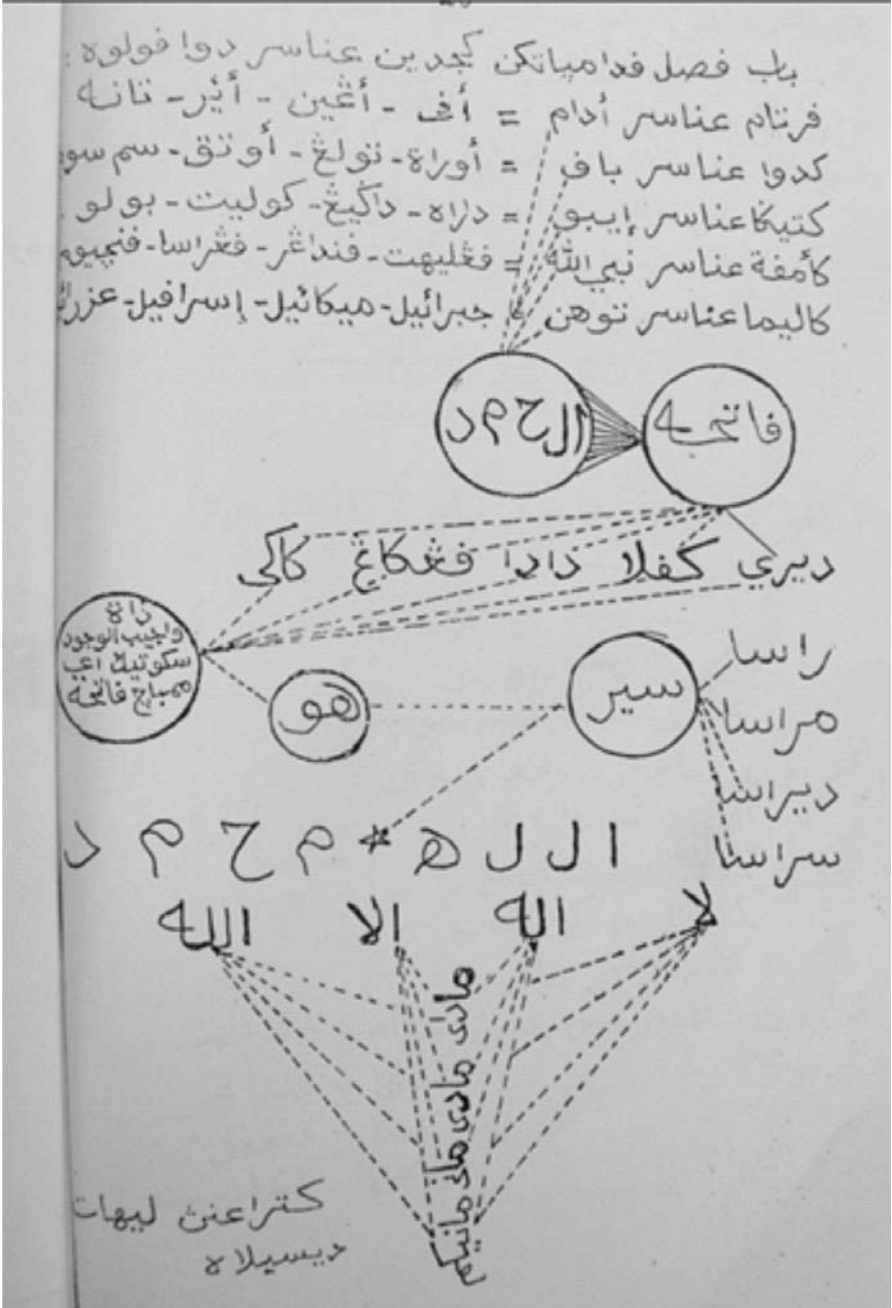 باب فصل فدامپاتكن كجدين عناسر دوا فولوه :
فرتام عناسر أدام = أفي - أڠين - أير - تانه
كدوا عناسر باف = أوراة - تولڠ - أوتق - سم سو
كتيكا عناسر إيبو = داراه - داڬيڠ - كوليت - بولو
كأمفة عناسر نبي الله = فڠليهت - فنداڠر - فڠراسا - فنچيوم
كاليما عناسر توهن = جبرائيل - ميكائيل - إسرافيل - عزرائ
فاتحه
ال ح م د
ديري كفلا دادا فڠكاڠ كاكى
ذاة
واجيب الوجود
سكوتيك
ممباچ فاتحه
هو
سير
راسا
مراسا
ديراسا
سراسا
ا ل ل ه * م ح م د
لا اله الا الله
مادى
مادى
ماني
مانيكم
كتراعنن ليهات
ديسيلاه